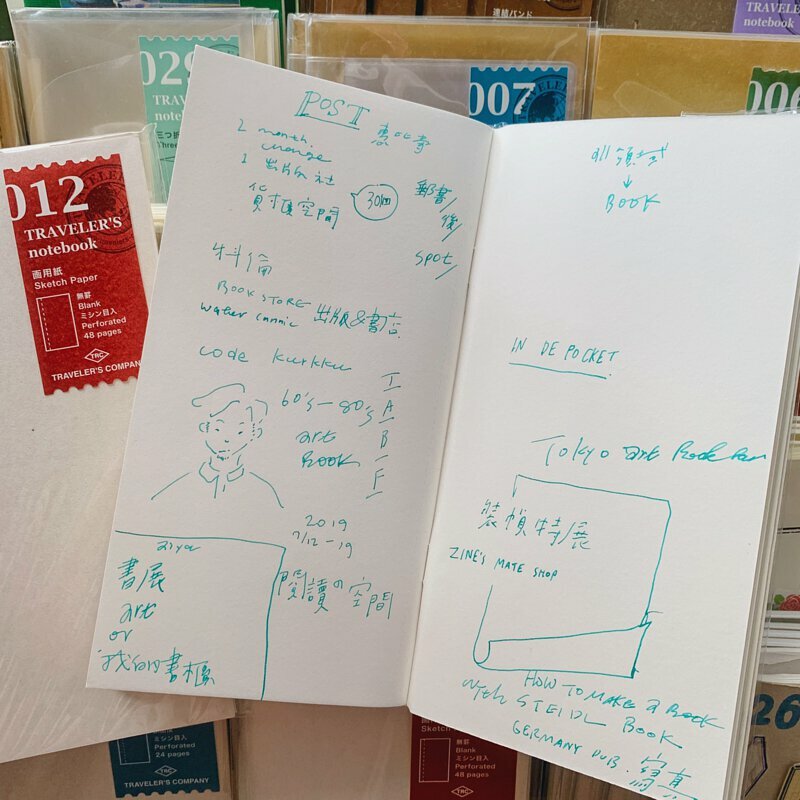 連結バンド
029
TRAVELER'S
007
TRAVELER'S
006
012
TRAVELER'S
notebook
画用紙
Sketch Paper
無罫
Blank
ミシン目入
Perforated
48 pages
TRC
TRAVELER'S COMPANY
POST
恵比寿
2 month
change
1 出版社
30km
郵書/
後/
spot/
BOOK STORE
出版&書店
code kurkku
60's-80's
art
BOOK
TABF
2019
7/12-19
閱讀の空間
書展
art
or
我的書櫃
all 領域
↓
BOOK
IN DE POCKET
TOKYO art Book
裝幀特展
ZINE'S MATE SHOP
HOW TO MAKE a BOOK
with STEIDL BOOK
GERMANY PUB. 寫真
無罫
Blank
ミシン目入
Perforated
24 pages
TRC
TRAVELER'S COMPANY
Sketch
無罫
Blank
ミシン目入
Perforated
48 pages
TRC
26